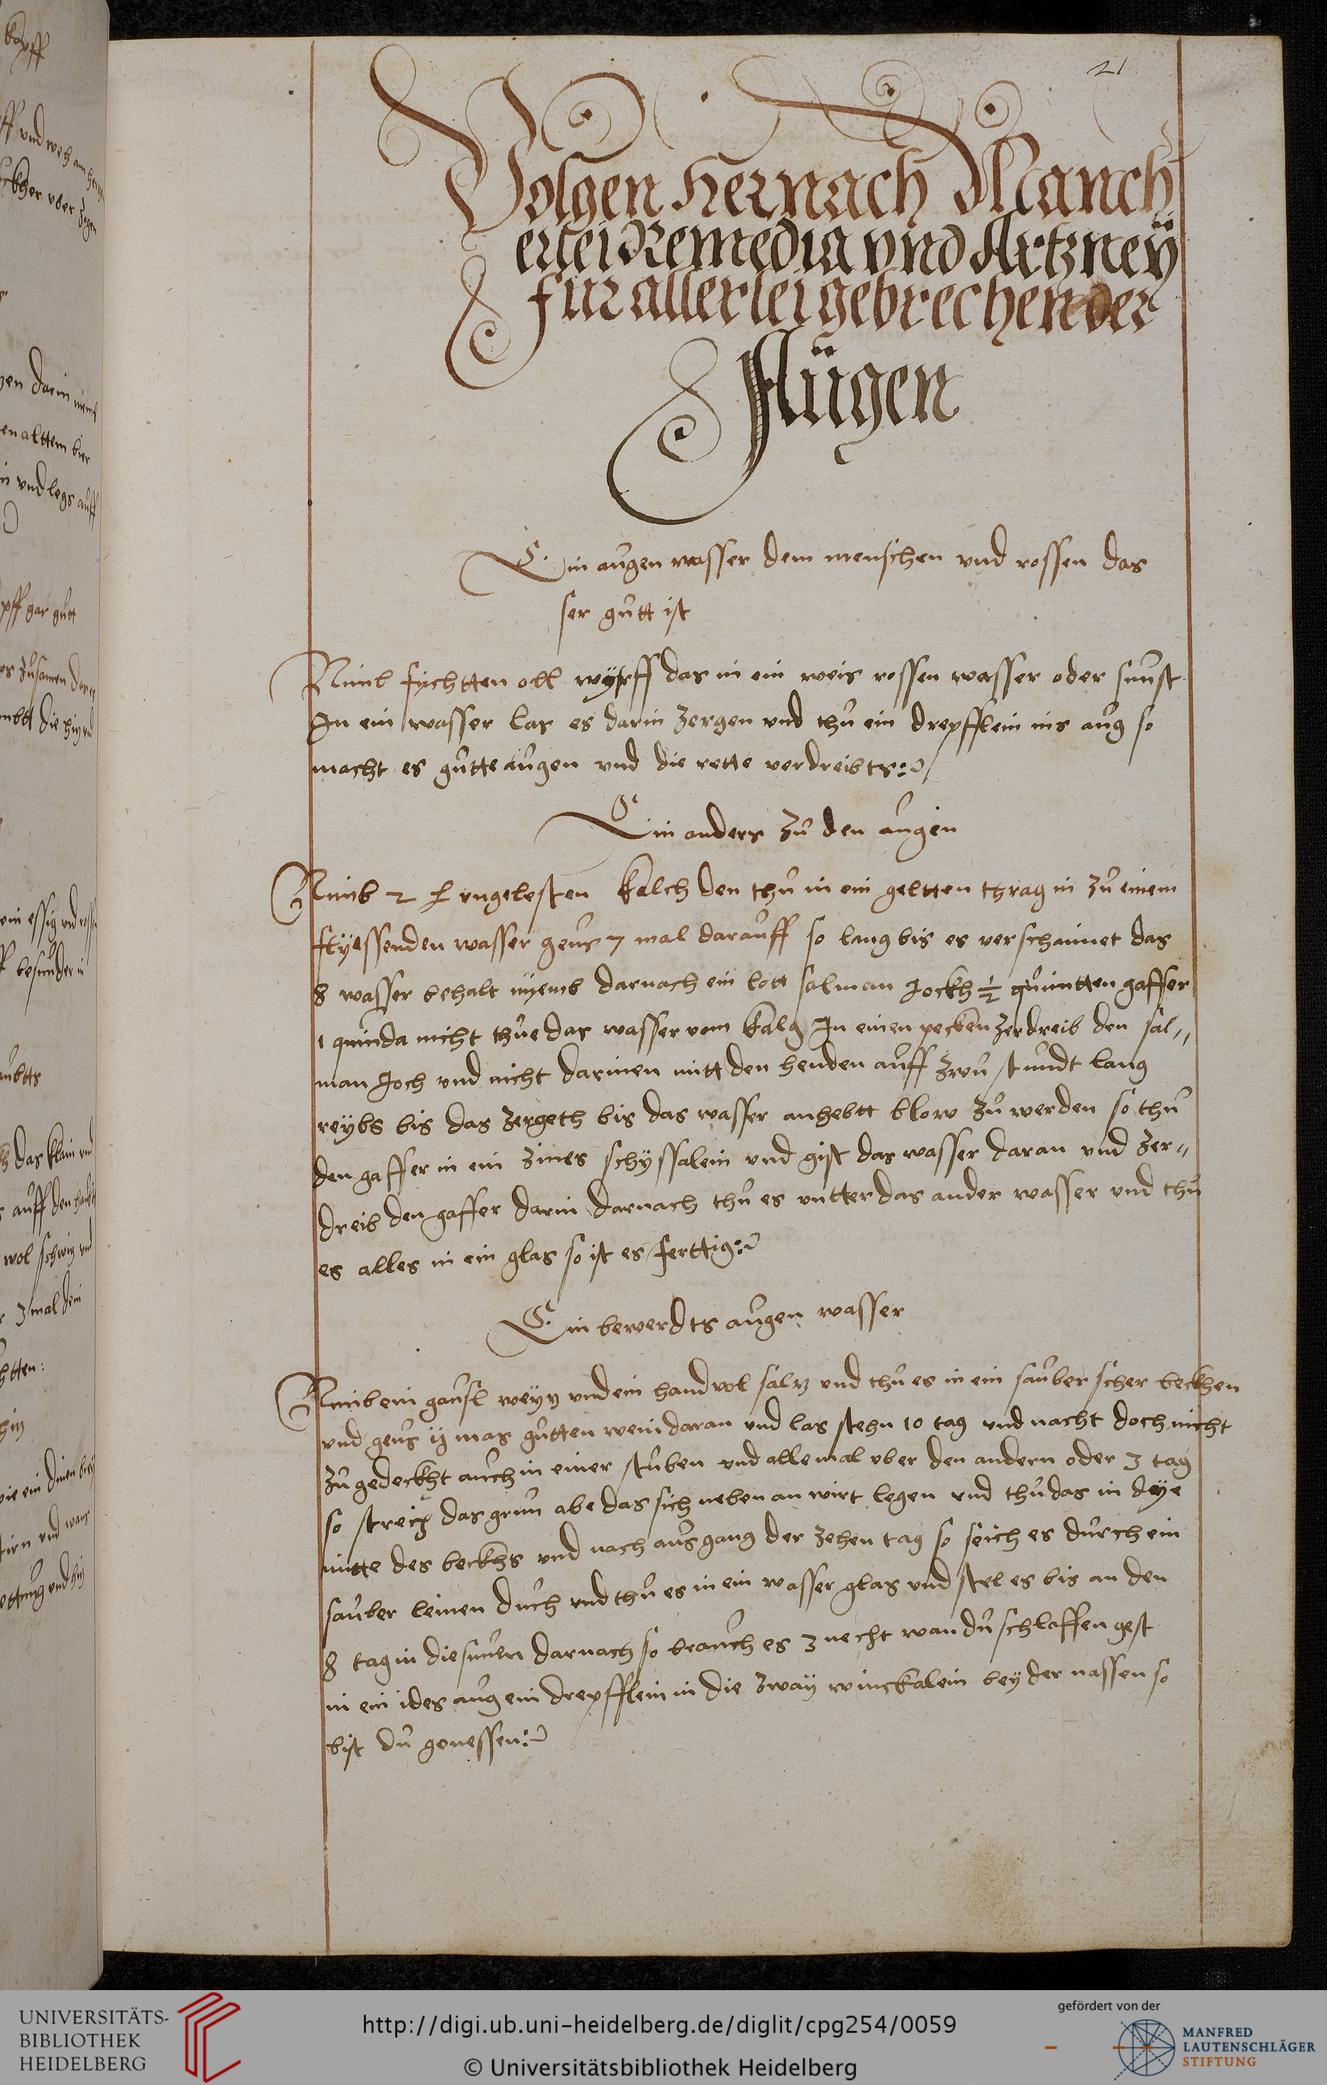 21
Volgen hernach Manch
erlei Remedia vnd Artzney
für allerlei gebrechen der
Augen
Ein augen wasser dem menschen vnd rossen das
ser gutt ist
Nimb fychtten oll wyrff das in ein weis rossen wasser oder sunst
In ein wasser las es darin zergen vnd thu ein drepfflein ins aug so
macht es gutte augen vnd die rette verdreibts
Ein anders zu den augen
Nimb 2 ℔ vngelesten kalch den thu in ein geltten thrag in zu einem
flyessenden wasser geus 7 mal darauff so lang bis es verschaimet das
8 wasser behalt nyemb darnach ein lott salman Jockh ½ quintten gaffer
1 quinda nicht thue das wasser vom kalg In einen pecken zerdreib den sal-
man Joch vnd nicht darinen mitt den henden auff zwu stundt lang
reybs bis das zergeth bis das wasser anhebtt blow zu werden so thu
den gaffer in ein zines schyssalein vnd gist das wasser daran vnd zer-
dreib den gaffer darin darnach thu es vntter das ander wasser vnd thu
es alles in ein glas so ist es ferttig
Ein bewerdts augen wasser
Nimb ein gausl weyn vnd ein handvol saltz vnd thu es in ein sauber scher beckhen
vnd geus ij mas gutten wein daran vnd las stehn 10 tag vnd nacht doch nicht
zugedeckht auch in einer stuben vnd allemal vber den andern oder 3 tag
so streich das grun abe das sich neben an wirt legen vnd thu das in dye
mitte des beckhs vnd nach ausgang der zehen tag so seich es durch ein
sauber leinen duch vnd thu es in ein wasser glas vnd stel es bis an den
8 tag in die sunen darnach so brauch es 3 necht wan du schlaffen gest
in ein ides aug ein drepfflein in die zway winckalein bey der nassen so
bist du genessen
UNIVERSITÄTS-
BIBLIOTHEK
HEIDELBERG
http://digi.ub.uni-heidelberg.de/diglit/cpg254/0059
© Universitätsbibliothek Heidelberg
gefördert von der
MANFRED
LAUTENSCHLÄGER
STIFTUNG